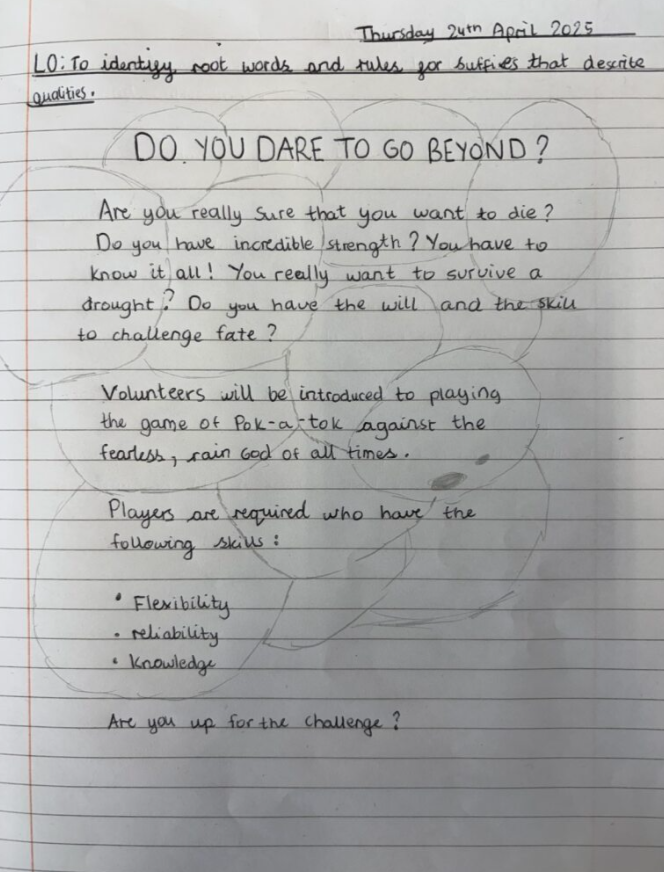 Thursday 24th April 2025
LO: To identify root words and rules for suffies that describe
qualities.
DO YOU DARE TO GO BEYOND?
Are you really sure that you want to die?
Do you have incredible strength? You have to
know it all! You really want to survive a
drought? Do you have the will and the skill
to challenge fate?
Volunteers will be introduced to playing
the game of Pok-a-tok against the
fearless, rain God of all times.
Players are required who have the
following skills:
• Flexibility
• reliability
• Knowledge
Are you up for the challenge?